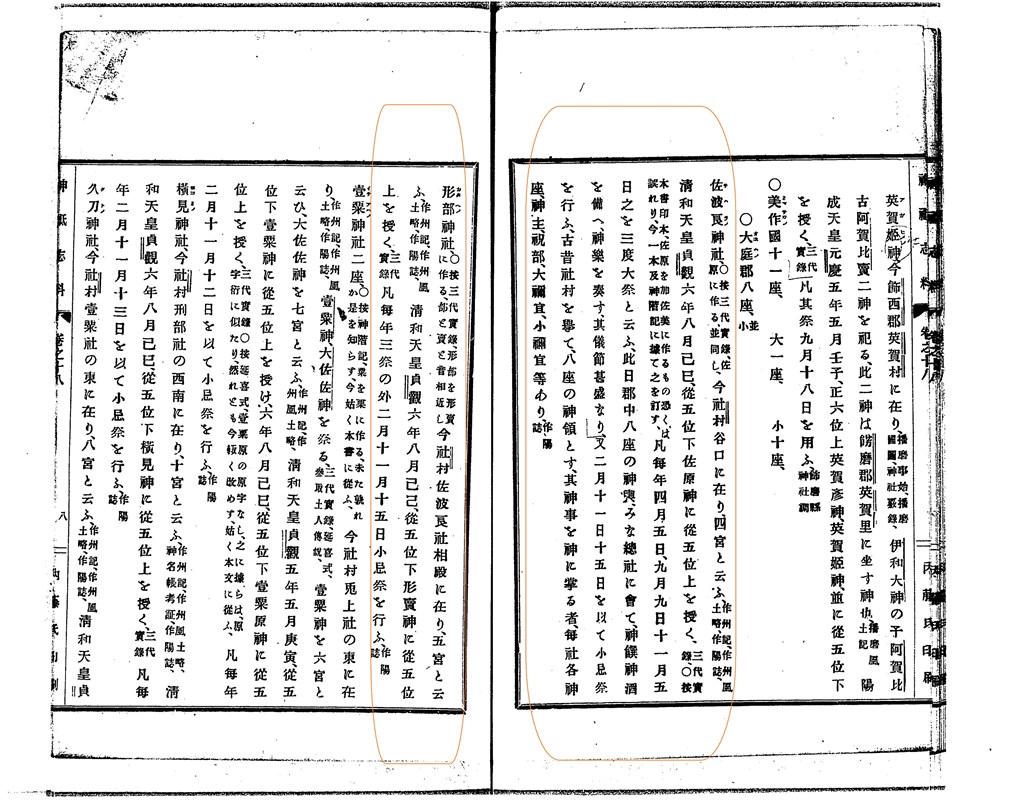 英賀姫神今餝西郡英賀村に在り、播磨事始、播磨國圖神社覈録、伊和大神の子阿賀比
古阿賀比賣二神を祀る、此二神は餝磨郡英賀里に坐す神也、播磨風土記 陽
成天皇元慶五年五月壬子、正六位上英賀彦神、英賀姫神、並に從五位下
を授く、三代實錄 凡其祭九月十八日を用ふ、餝磨縣神社調
〇美作國十一座、 大一座、 小十座、
〇大庭郡八座、並小
佐波良神社、〇按三代實錄、佐原に作る、並同し、今社村谷口に在り、四宮と云ふ、作州記、作州風土略、作陽誌、
清和天皇貞觀六年八月己巳、從五位下佐原神に從五位上を授く、三代實錄〇按
木書印本佐原を加佐美に作るもの恐くは誤れり、今一本及神階記に據て之を訂す、凡毎年四月五日、九月九日十一月五
日之を三度大祭と云ふ、此日郡中八座の神輿みな總社に會て、神饌神酒
を備へ、神樂を奏す、其儀節甚盛なり、又二月十一日十五日を以て小忌祭
を行ふ、古昔社村を擧て、八座の神領とす、其神事を神に掌る者、毎社各神
座、神主、祝部大禰宜、小禰宜等あり、作陽誌
神祇志料 卷之十八
形部神社、〇按三代實錄、形部を形賣に作る、部と賣と音相近し、今社村佐波良社相殿に在り、五宮と云
ふ、作州記、作州風土略、作陽誌、 清和天皇貞觀六年八月己巳、從五位下形賣神に從五位
上を授く、三代實錄 凡毎年三祭の外二月十一月十五日小忌祭を行ふ、作陽誌
壹粟神社二座、〇按神階記、粟を栗に作る、未た孰れか是を知らす、今姑く本書に從ふ、 今社村兎上社の東に在
り、作州記、作州風土略、作陽誌、 壹粟神、大佐佐神を祭る、三代實錄、延喜式、參取土人傳説、壹粟神を六宮と
云ひ、大佐佐神を七宮と云ふ、作州記、作州風土略、 清和天皇貞觀五年五月庚寅、從五
位下壹粟神に從五位上を授け、六年八月己巳、從五位下壹粟原神に從五
位上を授く、三代實錄〇按延喜式、壹粟原の原字なし、之に據らは、原字衍に似たり然れとも今輙く改めす、姑く本文に從ふ、 凡毎年
二月十一月十二日を以て小忌祭を行ふ、作陽誌
横見神社、今社村刑部社の西南に在り、十宮と云ふ、作州記、作州風土略、神名帳考証、作陽誌、 清
和天皇貞觀六年八月己巳、從五位下横見神に從五位上を授く、三代實錄 凡毎
年二月十一月十三日を以て小忌祭を行ふ、作陽誌
久刀神社、今社村壹粟社の東に在り、八宮と云ふ、作州記、作州風土略、作陽誌、 清和天皇貞
神祇志料 卷之十八 八